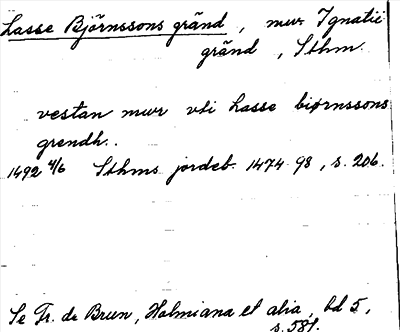 Lasse Björnssons gränd, mur Ignatii
gränd, Sthm.
vestan mwr vti Lasse biørnssons
grendh..
1492 4/6 Sthms jordeb. 1474-98, s. 206.
Se Fr. de Brun, Holmiana et alia, bd 5,
s. 581.